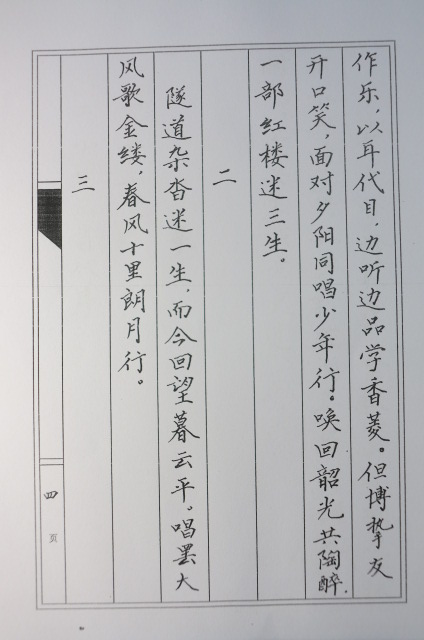 作乐，以耳代目，边听边品学香菱。但博挚友
开口笑，面对夕阳同唱少年行。唤回韶光共陶醉，
一部红楼迷三生。
二
隧道杂沓迷一生，而今回望暮云平。唱罢大
风歌金缕，春风十里朗月行。
三
四
页